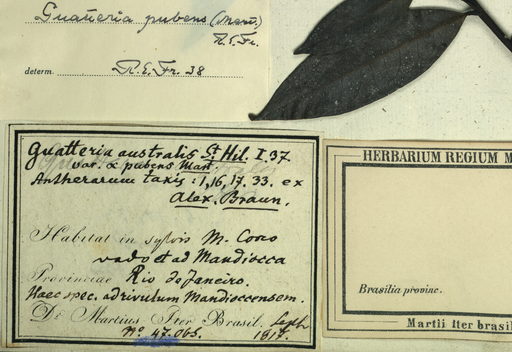 Guatteria pubens (Mart.)
R.E.Fr.
determ. R.E.Fr. 38
Guatteria australis St Hil. I.37.
var. α pubens Mart.
Antherarum taxis: 1,16,17.33. ex
Alex. Braun.
Habitat in sylvis M. Corco
vado et ad Mandiocca
Provinciae Rio de Janeiro.
Haec spec. ad rivulum Mandioccensem.
De Martius Iter Brasil. Septb
No 47.065. 1817.
HERBARIUM REGIUM M
Brasilia provinc.
Martii Iter brasil